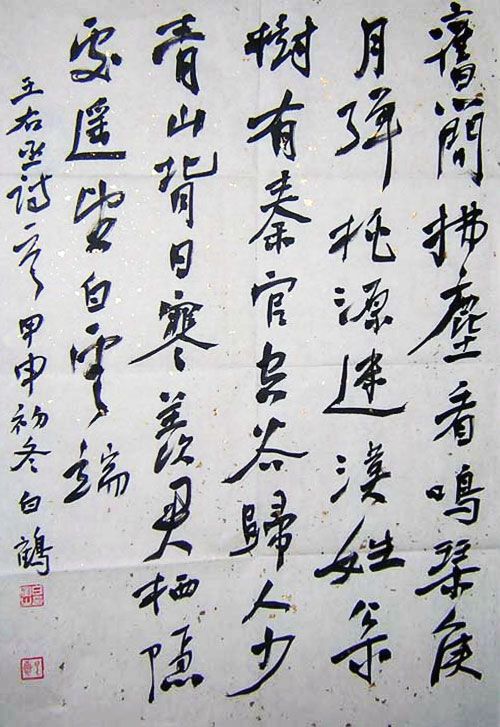 舊簡拂塵看鳴琴候
月彈桃源迷漢姓枀
樹有秦官空谷歸人少
青山背日寒羨君栖隱
處遥望白雲端
王右丞詩 甲申初冬白鶴